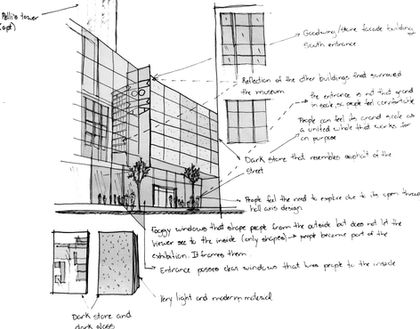 Pelli's tower
(apt)
Goodwing/stone facade building
South entrance
Reflection of the other buildings that surround
the museum
the entrance is not that grand
in scale so people feel comfortable
People can feel its grand scale as
a united whole that works for
on purpose
Dark stone that resembles asphalt of the
street
People feel the need to explore due to its open through
hall axis design.
Foggy windows that shape people from the outside but does not let the
viewer see to the inside (only shapes) → people become part of the
exhibition. It frames them
Entrance possess clear windows that lures people to the inside
Very light and modern material
Dark stone and
dark glass